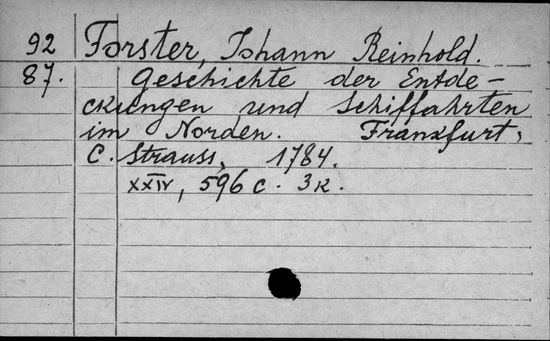 92 Forster, Johann Reinhold.
87. Geschichte der Entde-
ckungen und Schiffahrten
im Norden. Frankfurt,
C. Strauss, 1784.
XXIV, 596 c. 3 к.